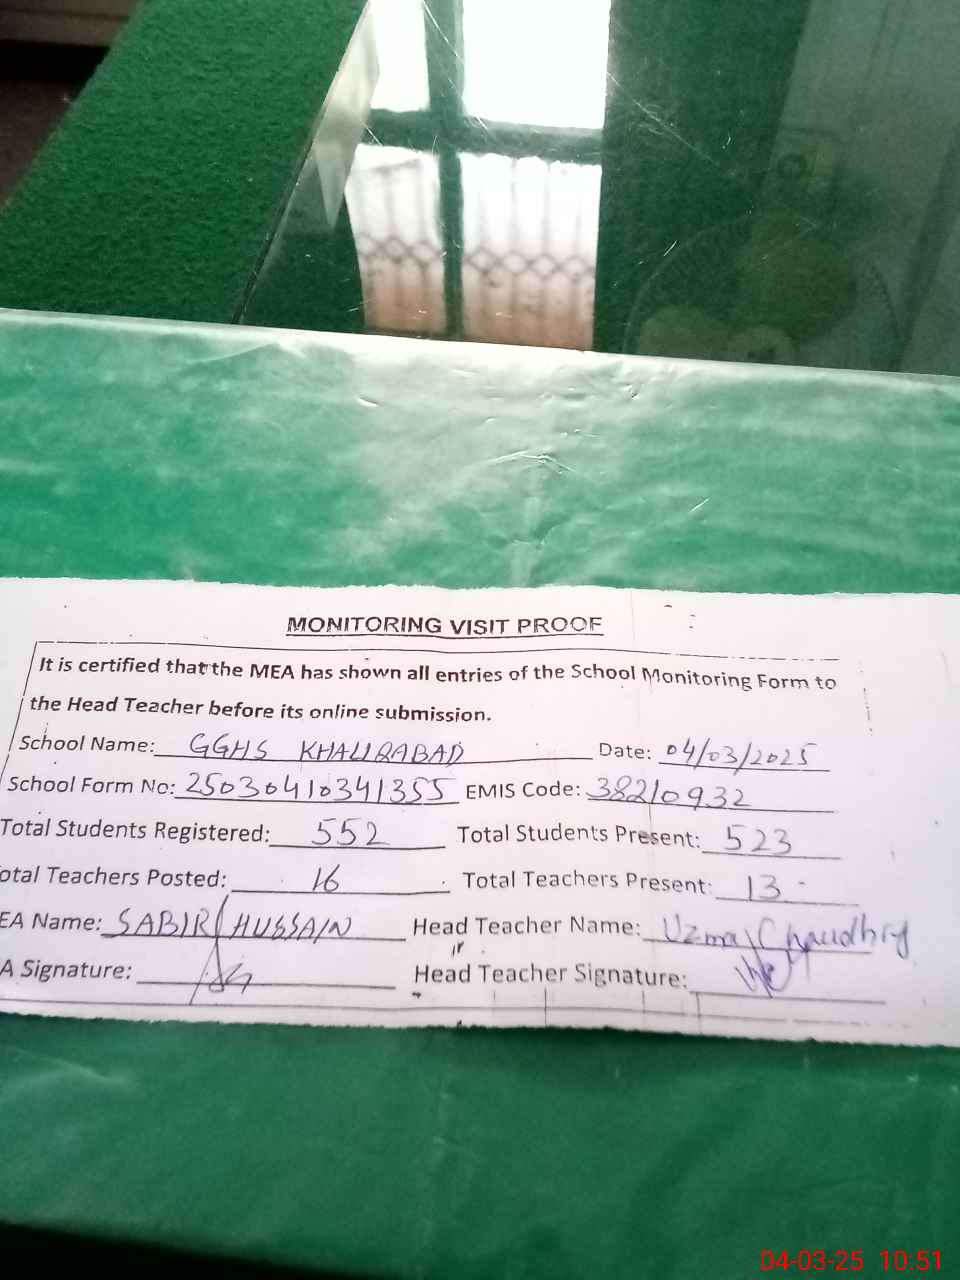 MONITORING VISIT PROOF
It is certified that the MEA has shown all entries of the School Monitoring Form to
the Head Teacher before its online submission.
School Name: GGHS KHALIQABAD Date: 04/03/2025
School Form No: 25030410341355 EMIS Code: 38210932
Total Students Registered: 552 Total Students Present: 523
otal Teachers Posted: 16 Total Teachers Present: 13
EA Name: SABIR HUSSAIN Head Teacher Name: Uzma Chaudhry
A Signature: Head Teacher Signature:
04-03-25 10:51